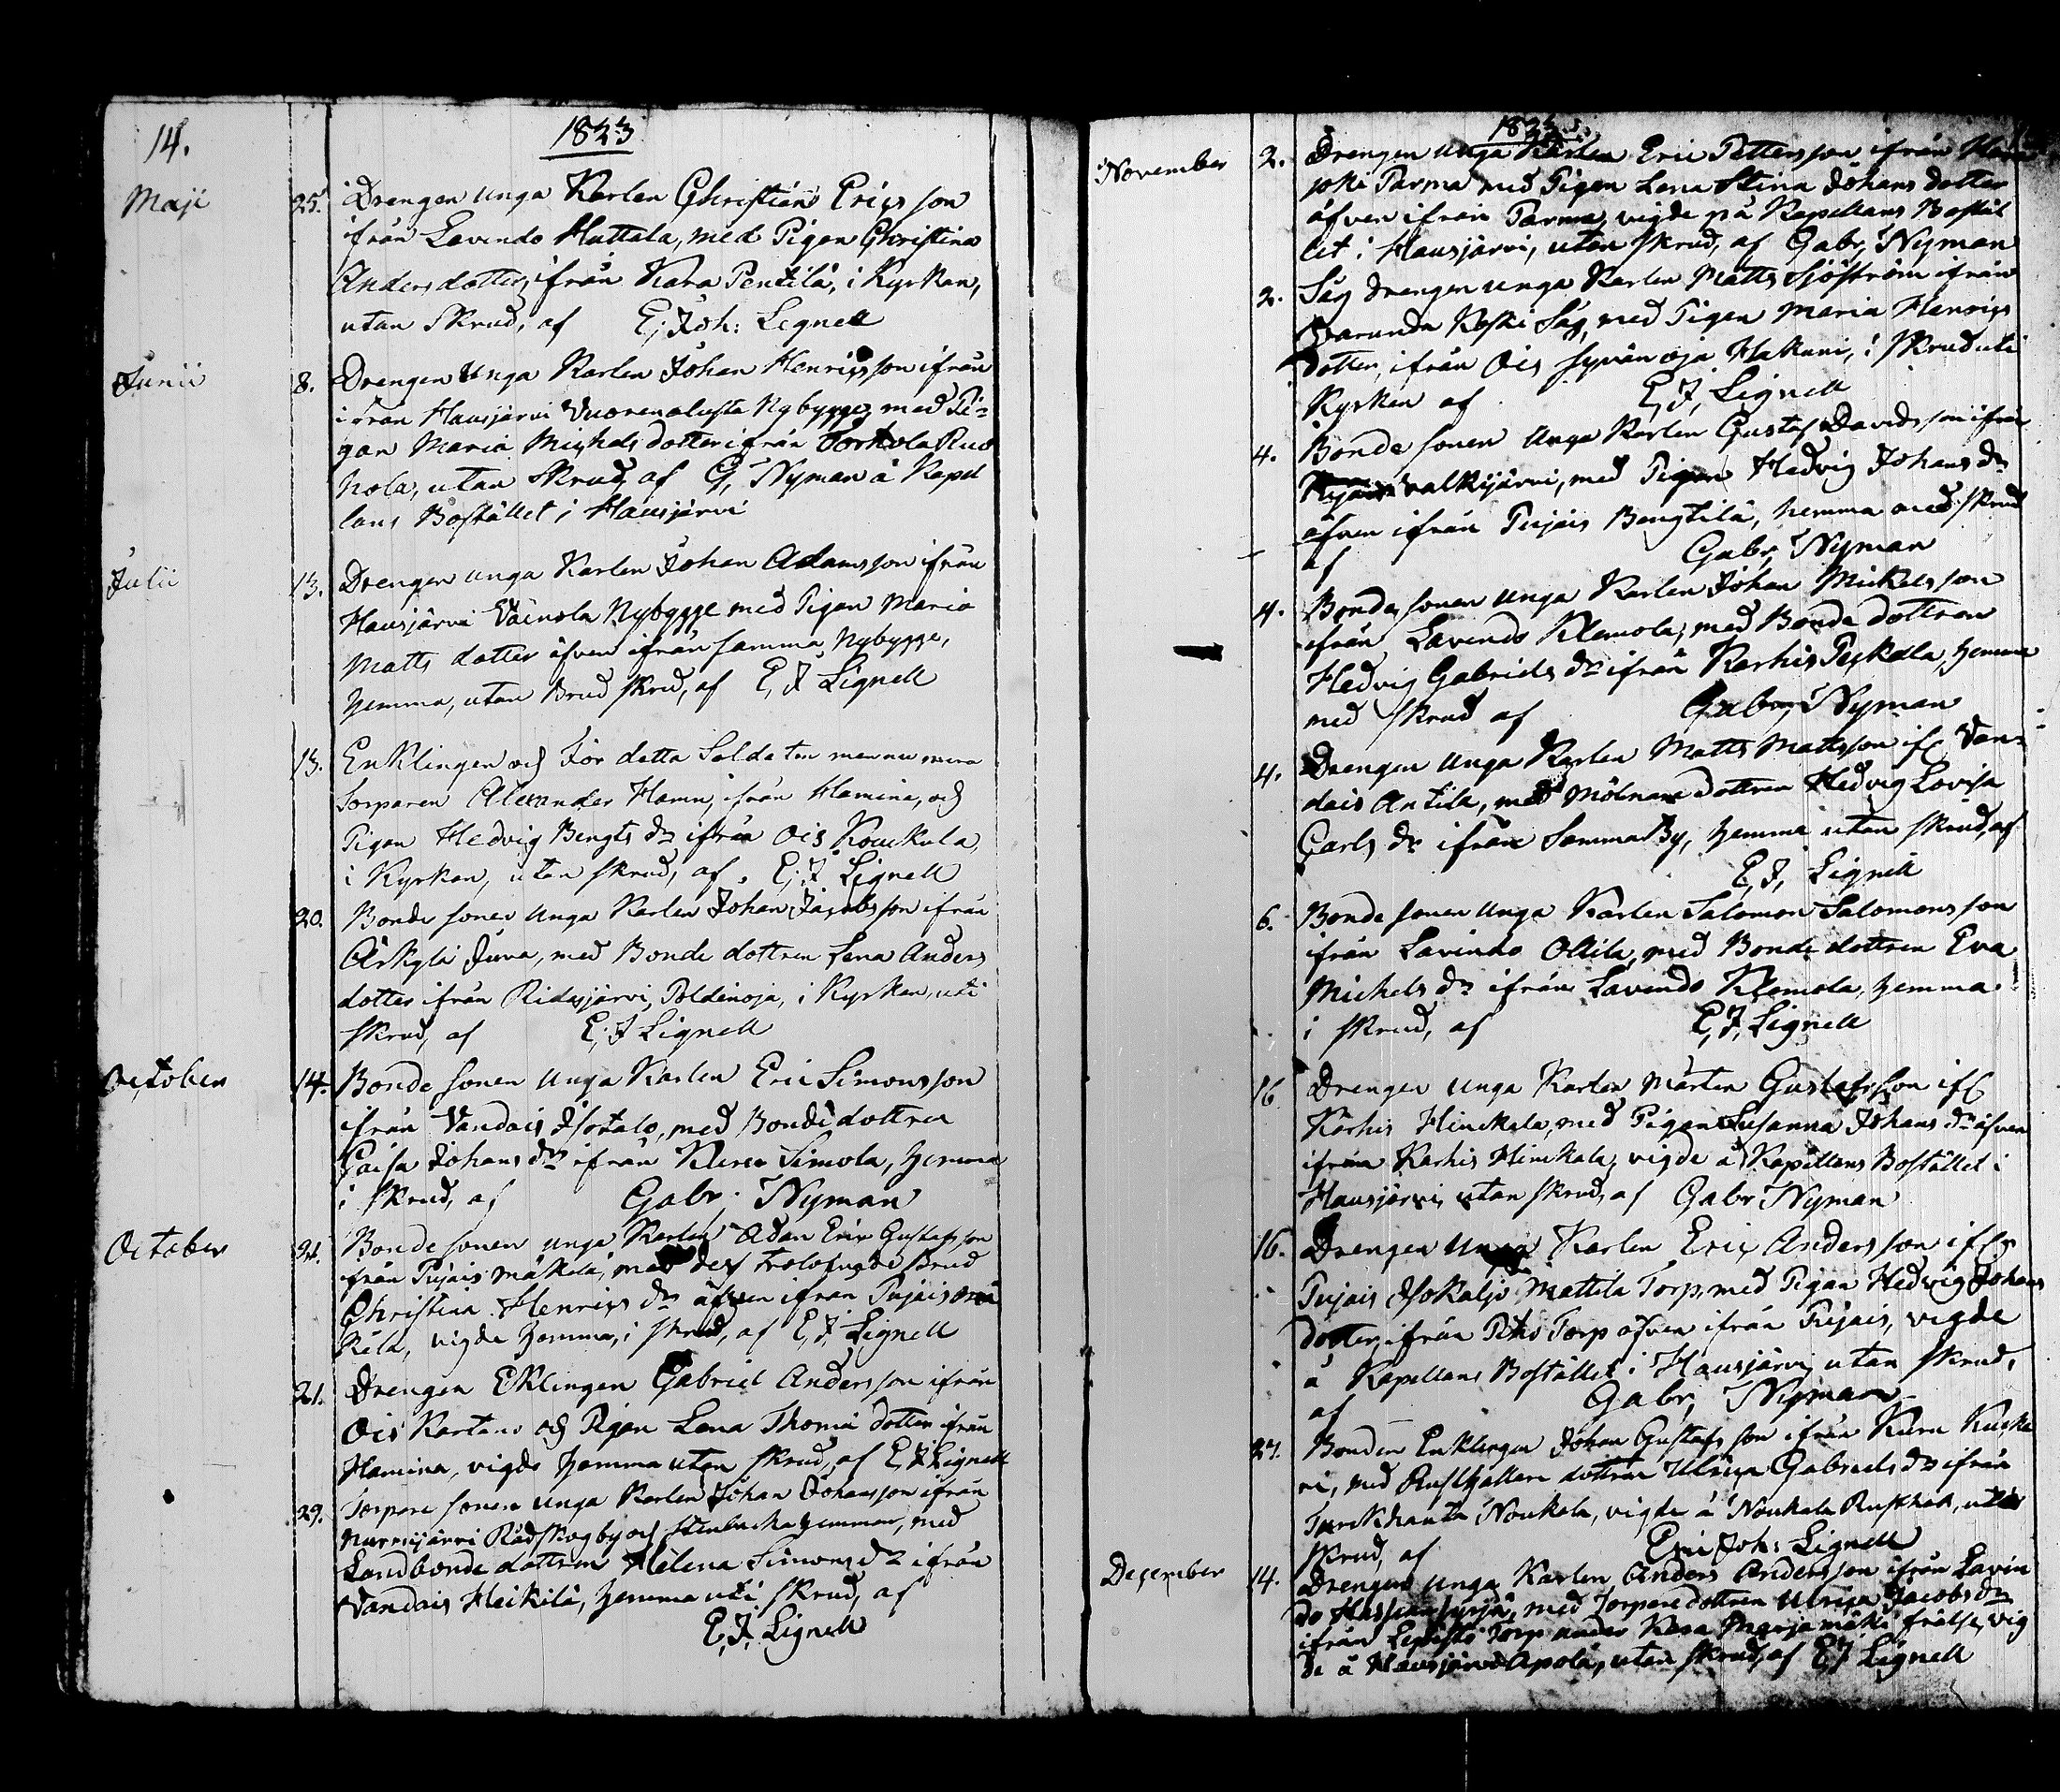 14.
1823
Maji
25. Drengen unga Karlen Christian Ericsson
ifrån Lavindo Huttala, med Pigan Christina
Anders dotter, ifrån Kara Pentilä, i Kyrkan,
utan Skrud, af E. Joh: Lignell
Junii
8. Drengen Unga Karlen Johan Henricsson ifrån
ifrån Hausjärvi Vuorenalusta Nybygge, med Pi-
gan Maria Michelsdotter ifrån Torhola Ruo
hola, utan Skrud, af G, Nyman å Kapel
lans Bostället i Hausjärvi
Julii
13. Drengen unga Karlen Johan Adamsson ifrån
Hausjärvi Väinola Nybygge med Pigan Maria
Matts dotter äfven ifrån samma Nybygge,
hemma, utan Brud skrud, af E, J Lignell
13. Enklingen och För detta Soldaten men nu mera
Torparen Alexander Hamn, ifrån Hamina, och
Pigan Hedvig Bengts dr ifrån Ois Kouckula,
i Kyrkan, utan skrud, af. E, J Lignell
20. Bonde sonen unga Karlen Johan Jacobsson ifrån
Ärkylä Juva, med Bonde dottren Lena Anders
dotter ifrån Ridasjärvi, Poldinoja, i Kyrkan, uti
skrud, af E, J Lignell
October
14. Bonde sonen unga Karlen Eric Simonsson
ifrån Vandais Isotalo, med Bonde dottren
Caisa Johans dr ifrån Simola, hemma
i skrud, af Gabr. Nyman
October
21. Bonde sonen unga Karlen Adan Eric Gustafsson
ifrån Pujais Mäkelä, med des trolofvade Brud
Christina Henrics dr äfven ifrån Pujais Mä
kelä, vigde hemma, i skrud, af E, J Lignell
21. Drengen Eklingen Gabriel Andersson ifrån
Ois Kartano och Pigan Lena Thomæ dotter ifrån
Hamina, vigde hemma utan skrud, af E, J Lignell
29. Torpare sonen unga Karlen Johan Johansson ifrån
Nurmijärvi Rådskog by och hemman, med
Landbonde dottren Helena Simons dr ifrån
Vandais Heikilä, hemma uti skrud, af
E, J, Lignell
1823
November
2. Drengen unga Karlen Eric Pettersson ifrån
joki Parma med Pigan Lena Stina Johans dotter
äfven ifrån Parma, vigde på Kapellans Bostäl
let i Hausjärvi, utan skrud, af Gabr, Nyman
2. Såg drengen unga Karlen Matts Sjöström ifrån
Varunda Koski Såg, med Pigan Maria Henrics
dotter, ifrån Ois Syvänoja Hakuni, i skrud uti
Kyrkan af E, J, Lignell
4. Bonde sonen Unga Karlen Gustaf Davidsson ifrån
Valkjärvi, med Pigan Hedvig Johans dr
äfven ifrån Pujais Bengtilä, hemma med skrud
af Gabr, Nyman
4. Bonde sonen unga Karlen Johan Mickelsson
ifrån Lavindo Klemola, med Bonde dottren
Hedvig Gabriels dr ifrån Karhis Peckala, hemma
med skrud af Gabr, Nyman
4. Drengen unga Karlen Matts Mattsson ifr Van-
dais Antila, med Mölnare dottren Hedvig Lovisa
Carls dr ifrån Samma By, hemma utan skrud, af
E, J, Lignell
6. Bonde sonen unga Karlen Salomon Salomonsson
ifrån Lavindo Ollila, med Bonde dottren Eva
Michels dr ifrån Lavindo Klemola, hemma
i skrud, af E, J, Lignell
16 Drengen unga Karlen Mårten Gustafsson ifr
Karhis Hinckala, med Pigan Susanna Johans dr äfven
ifrån Karhis Hinckala, vigde å Kapellans Bostället i
Hausjärvi utan skrud, af Gabr Nyman
16. Drengen unga Karlen Eric Andersson ifr
Pujais Isokaljo Mattila Torp med Pigan Hedvig Johans
dotter, ifrån Torp äfven ifrån Pujais, vigde
å Kapellans Bostället i Hausjärvi utan skrud,
af Gabr, Nyman
27. Bonden Enklingen Johan Gustafsson ifrån Kuru
ri, med Rusthållare dottren Ulrica Gabriels dr ifrån
Turckhauta Noukala, vigde å Noukala Rusthåll, uti
skrud, af Eric Joh: Lignell
December
14. Drengen unga Karlen Anders Andersson ifrån Lavin
do med Torpare dottren Ulrica Jacobs dr
ifrån Torp under Kara Marjamäki frälse, vig
de å Hausjärvi Apola, utan skrud, af E J Lignell